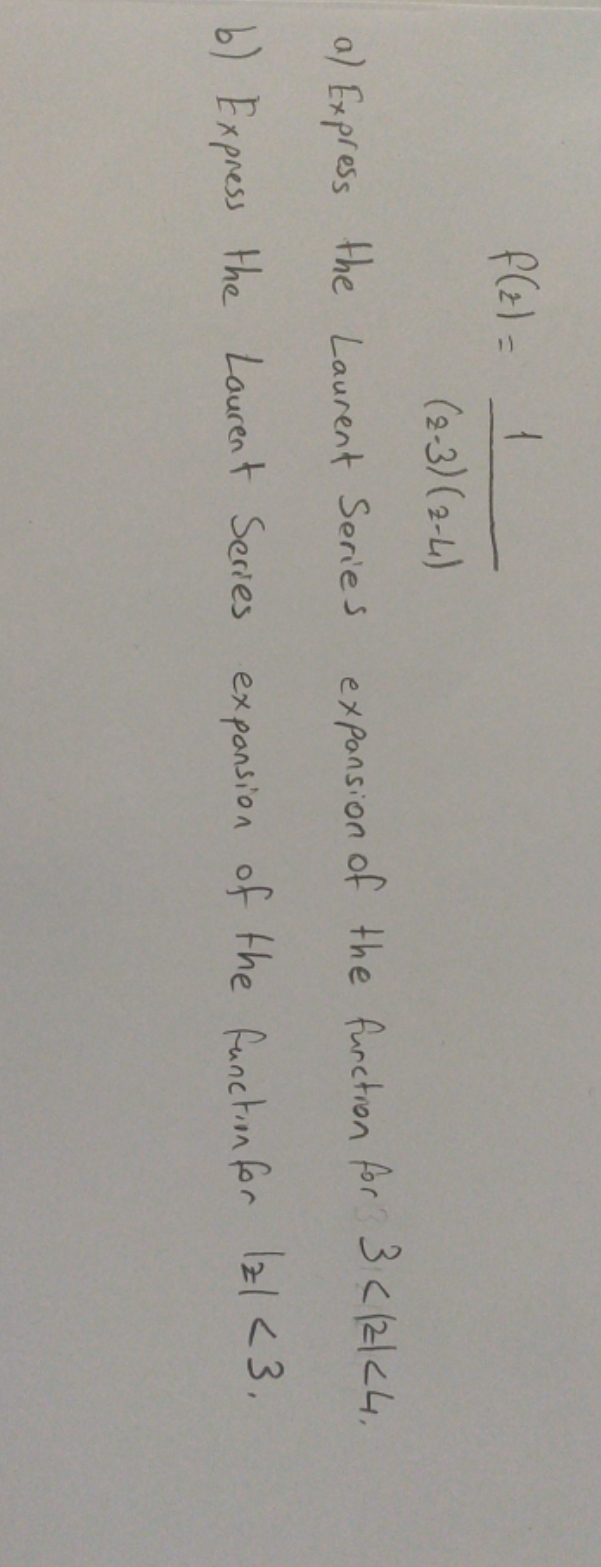 f(z) = 1
(z-3)(z-4)
a) Express the Laurent Series expansion of the function for 3<|z|<4.
b) Express the Laurent Series expansion of the function for |z|<3.